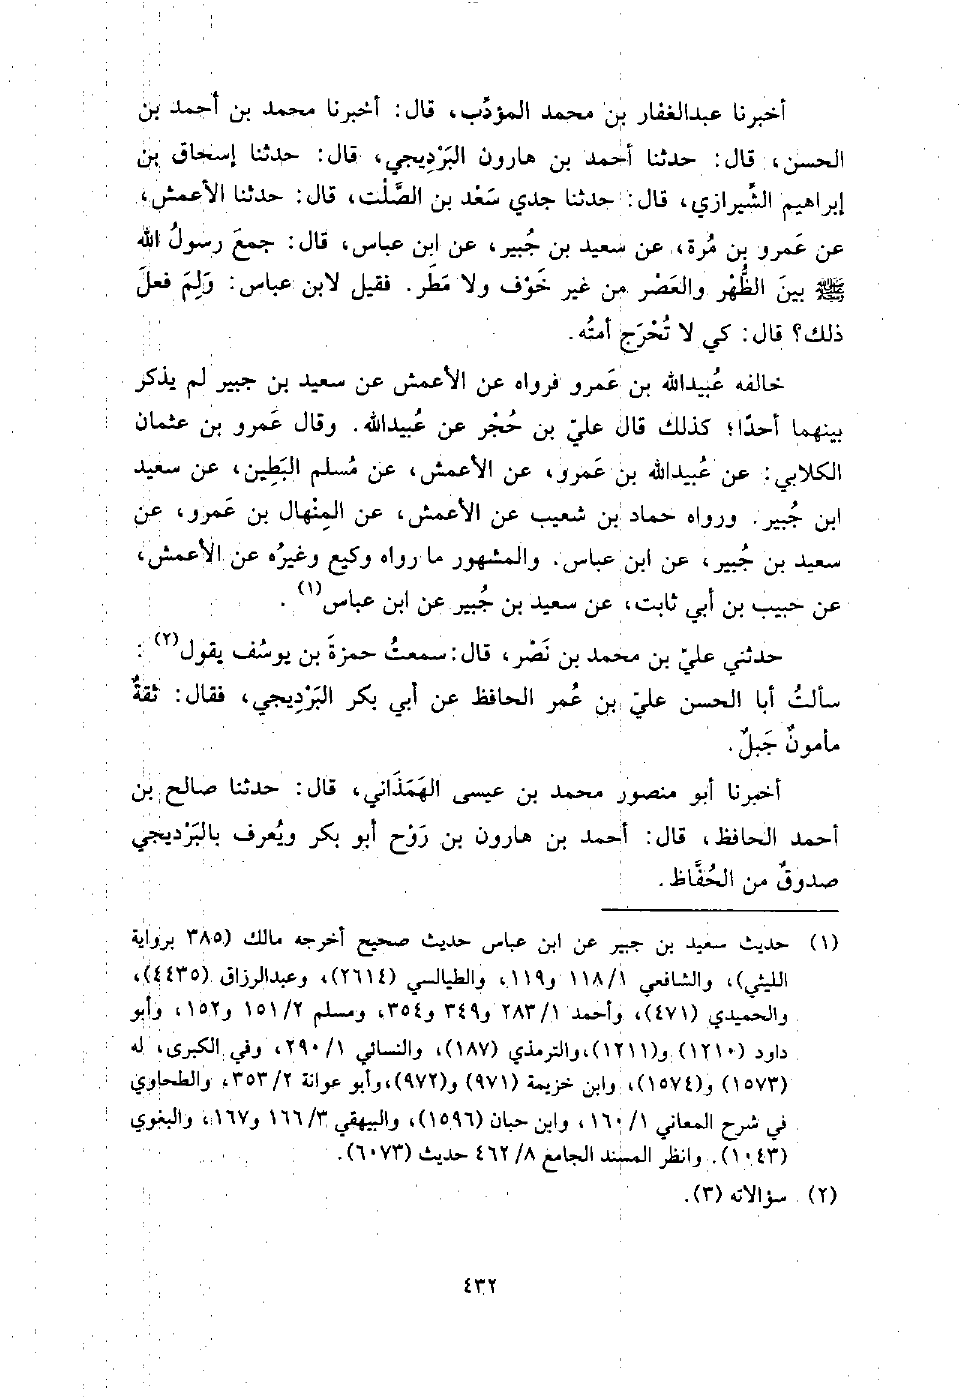 أخبرنا عبدالغفار بن محمد المؤدِّب، قال: أخبرنا محمد بن أحمد بن
الحسن، قال: حدثنا أحمد بن هارون البَرْدِيجي، قال: حدثنا إسحاق بن
إبراهيم الشِّيرازي، قال: حدثنا جدي سَعْد بن الصَّلْت، قال: حدثنا الأعمش،
عن عَمرو بن مُرة، عن سعيد بن جُبير، عن ابن عباس، قال: جمعَ رسولُ الله
ﷺ بينَ الظُّهْر والعَصْر من غير خَوْف ولا مَطَر. فقيل لابن عباس: وَلِمَ فعلَ
ذلك؟ قال: كي لا تُحْرَج أمتُه.
خالفه عُبيدالله بن عَمرو فرواه عن الأعمش عن سعيد بن جبير لم يذكر
بينهما أحدًا؛ كذلك قال عليّ بن حُجْر عن عُبيدالله. وقال عَمرو بن عثمان
الكلابي: عن عُبيدالله بن عَمرو، عن الأعمش، عن مُسلم البَطِين، عن سعيد
ابن جُبير. ورواه حماد بن شعيب عن الأعمش، عن المِنْهال بن عَمرو، عن
سعيد بن جُبير، عن ابن عباس. والمشهور ما رواه وكيع وغيرُه عن الأعمش،
عن حبيب بن أبي ثابت، عن سعيد بن جُبير عن ابن عباس(١).
حدثني عليّ بن محمد بن نَصْر، قال: سمعتُ حمزةَ بن يوسُف يقول(٢):
سألتُ أبا الحسن عليّ بن عُمر الحافظ عن أبي بكر البَرْدِيجي، فقال: ثقةٌ
مأمونٌ جَبلٌ.
أخبرنا أبو منصور محمد بن عيسى الهَمَذَاني، قال: حدثنا صالح بن
أحمد الحافظ، قال: أحمد بن هارون بن رَوْح أبو بكر ويُعرف بالبَرْديجي
صدوقٌ من الحُفَّاظ.
(١) حديث سعيد بن جبير عن ابن عباس حديث صحيح أخرجه مالك (٣٨٥ برواية
الليثي)، والشافعي ١/ ١١٨ و١١٩، والطيالسي (٢٦١٤)، وعبدالرزاق (٤٤٣٥)،
والحميدي (٤٧١)، وأحمد ١/ ٢٨٣ و٣٤٩ و٣٥٤، ومسلم ٢/ ١٥١ و١٥٢، وأبو
داود (١٢١٠) و(١٢١١)،والترمذي (١٨٧)، والنسائي ١/ ٢٩٠، وفي الكبرى، له
(١٥٧٣) و(١٥٧٤)، وابن خزيمة (٩٧١) و(٩٧٢)،وأبو عوانة ٢/ ٣٥٣، والطحاوي
في شرح المعاني ١/ ١٦٠، وابن حبان (١٥٩٦)، والبيهقي ٣/ ١٦٦ و١٦٧، والبغوي
(١٠٤٣). وانظر المسند الجامع ٨/ ٤٦٢ حديث (٦٠٧٣).
(٢) سؤالاته (٣).
٤٣٢